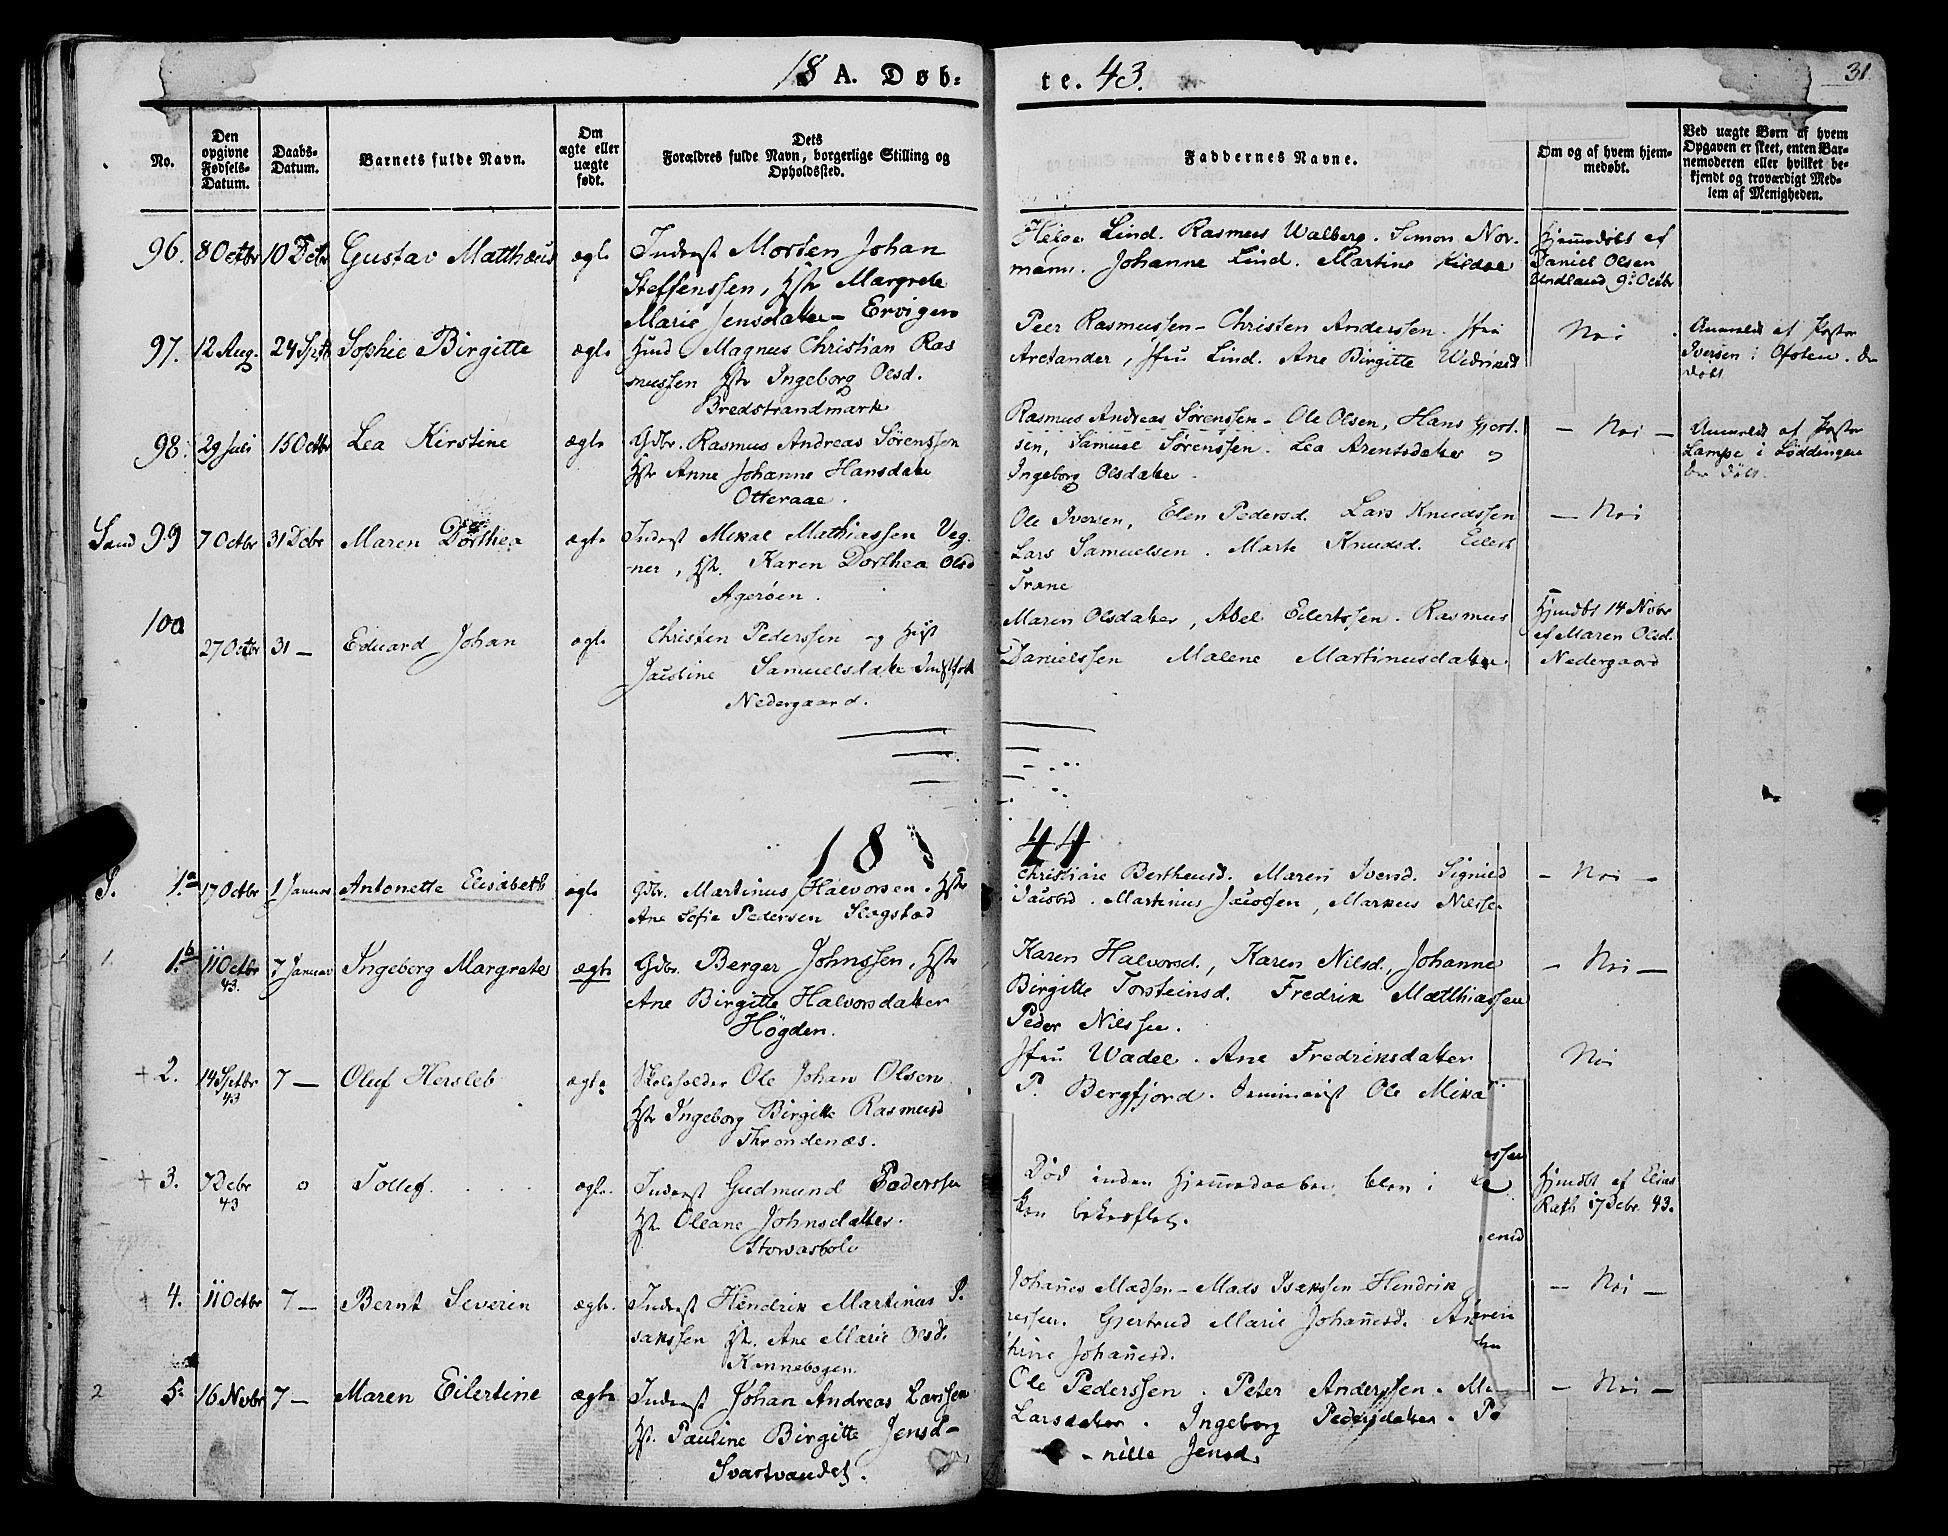 18 A. Døb-
te. 43.
31
No.
Den opgivne Fødsels-Datum.
Daabs-Datum.
Barnets fulde Navn.
Om ægte eller uægte født.
Dets Forældres fulde Navn, borgerlige Stilling og Opholdssted.
Faddernes Navne.
Om og af hvem hjem-medøbt.
Ved uægte Børn af hvem Opgaven er skeet, enten Bar-nemoderen eller hvilket be-kjendt og troværdigt Med-lem af Menigheden.
96. 8 Octbr 10 Decbr Gustav Matthæus ægte Inderst Morten Johan
Steffenssen, Hstr Margrete
Marie Jensdatter - Ervigen
Helge Lind. Rasmus Walberg. Simon Nor-
mann. Johanne Lind. Martine
Hjemmedøbt af
Daniel Olsen
Undland 9 Octbr
97. 12 Aug. 24 Septb Sophie Birgitte ægte Huusmd Magnus Christian Ras
mussen Hstr Ingeborg Olsd.
Bredstrandmark
Peer Rasmussen - Christen Anderssen. Jfru
Aretander, Jfru Lind. Ane Birgitte
Nei
Anmeldt af Pastor
Iversen i Ofoten. der
døbt
98. 29 Juli 15 Octbr Lea Kirstine ægte Gdbr. Rasmus Andreas Sørenssen
Hstr Anne Johanne Hansdatter
Otteraae.
Rasmus Andreas Sørenssen - Ole Olsen, Hans Gjert-
sen, Samuel Sørenssen. Lea Arentsdatter og
Ingeborg Olsdatter.
- Nei -
Anmeldt af Pastor
Lampe i Løddingen
der døbt
Sand 99 7 Octbr 31 Decbr Maren Dorthea ægte Inderst Mikal Mathiassen Veg-
ner, Hstr. Karen Dorthea Olsd
Agerøen.
Ole Iversen, Elen Pedersd. Lars Knudssen
Lars Samuelsen. Marte Knudsd. Eilert
Trane
- Nei
100 27 Octbr 31 - Eduard Johan ægte Christen Pederssen og Hust
Jacobine Samuelsdatter Inderstfolk
Nedergaard.
Maren Olsdatter, Abel Eilertssen. Rasmus
Danielssen Malene Martinusdatter.
Hjemdbt 14 Novbr
af Maren Olsd.
Nedergaard
18
44
S. 1.a 17 Octbr 1 Januar Antonette Elisabeth ægte Gdbr. Martinus Halvorsen. Hstr
Ane Sofie Pedersen Slogstad
Christiane Bertheusd. Maren Iversd. Signied
Jacobsd. Martinus Jacobsen, Markus Nilssen
- Nei -
1. 1.b 11 Octbr 43. 7 Januar Ingeborg Margrete ægte Gdbr. Berger Johnssen, Hstr
Ane Birgitte Halvorsdatter
Høgden.
Karen Halvorsd., Karen Nilsd. Johanne
Birgitte Torsteinsd. Fredrik Matthiassen
Peder Nilssen.
- Nei -
+ 2. 14 Septbr 43 7 - Oluf Hersleb ægte Skoleholder Ole Johan Olsen
Hstr Ingeborg Birgitte Rasmusd
Throndenæs.
Jfru Wadel. Ane Fredriksdatter
P. Bergfjord. Seminarist Ole Mika
Nei
+ 3. 7 Decbr 43 o Tollef. ægte. Inderst Gudmund Pederssen
Hstr. Oleane Johnsdatter.
Storvasbole
Død inden Hjemmedaaben blev i Kir
ken bekræftet.
Hjemdbt af Elias
Rath 17 Decbr 43.
4. 11 Octbr 7 - Bernt Severin ægte. Inderst Hendrik Martinus I-
sakssen Hstr. Ane Marie Olsd.
Kennebogen.
Johannes Madsen - Mads Isakssen Hendrik
Gjertrud Marie Johannesd.
Johannesd.
- Nei -
2 5. 16 Novbr 7 - Maren Eilertine ægte Inderst Johan Andreas Larssen
Hstr. Pauline Birgitte Jensd-
Svartvandet.
Ole Pederssen. Peter Anderssen.
Larsdatter. Ingeborg Pedersdatter. Pe
- nille Jensd.
- Nei -